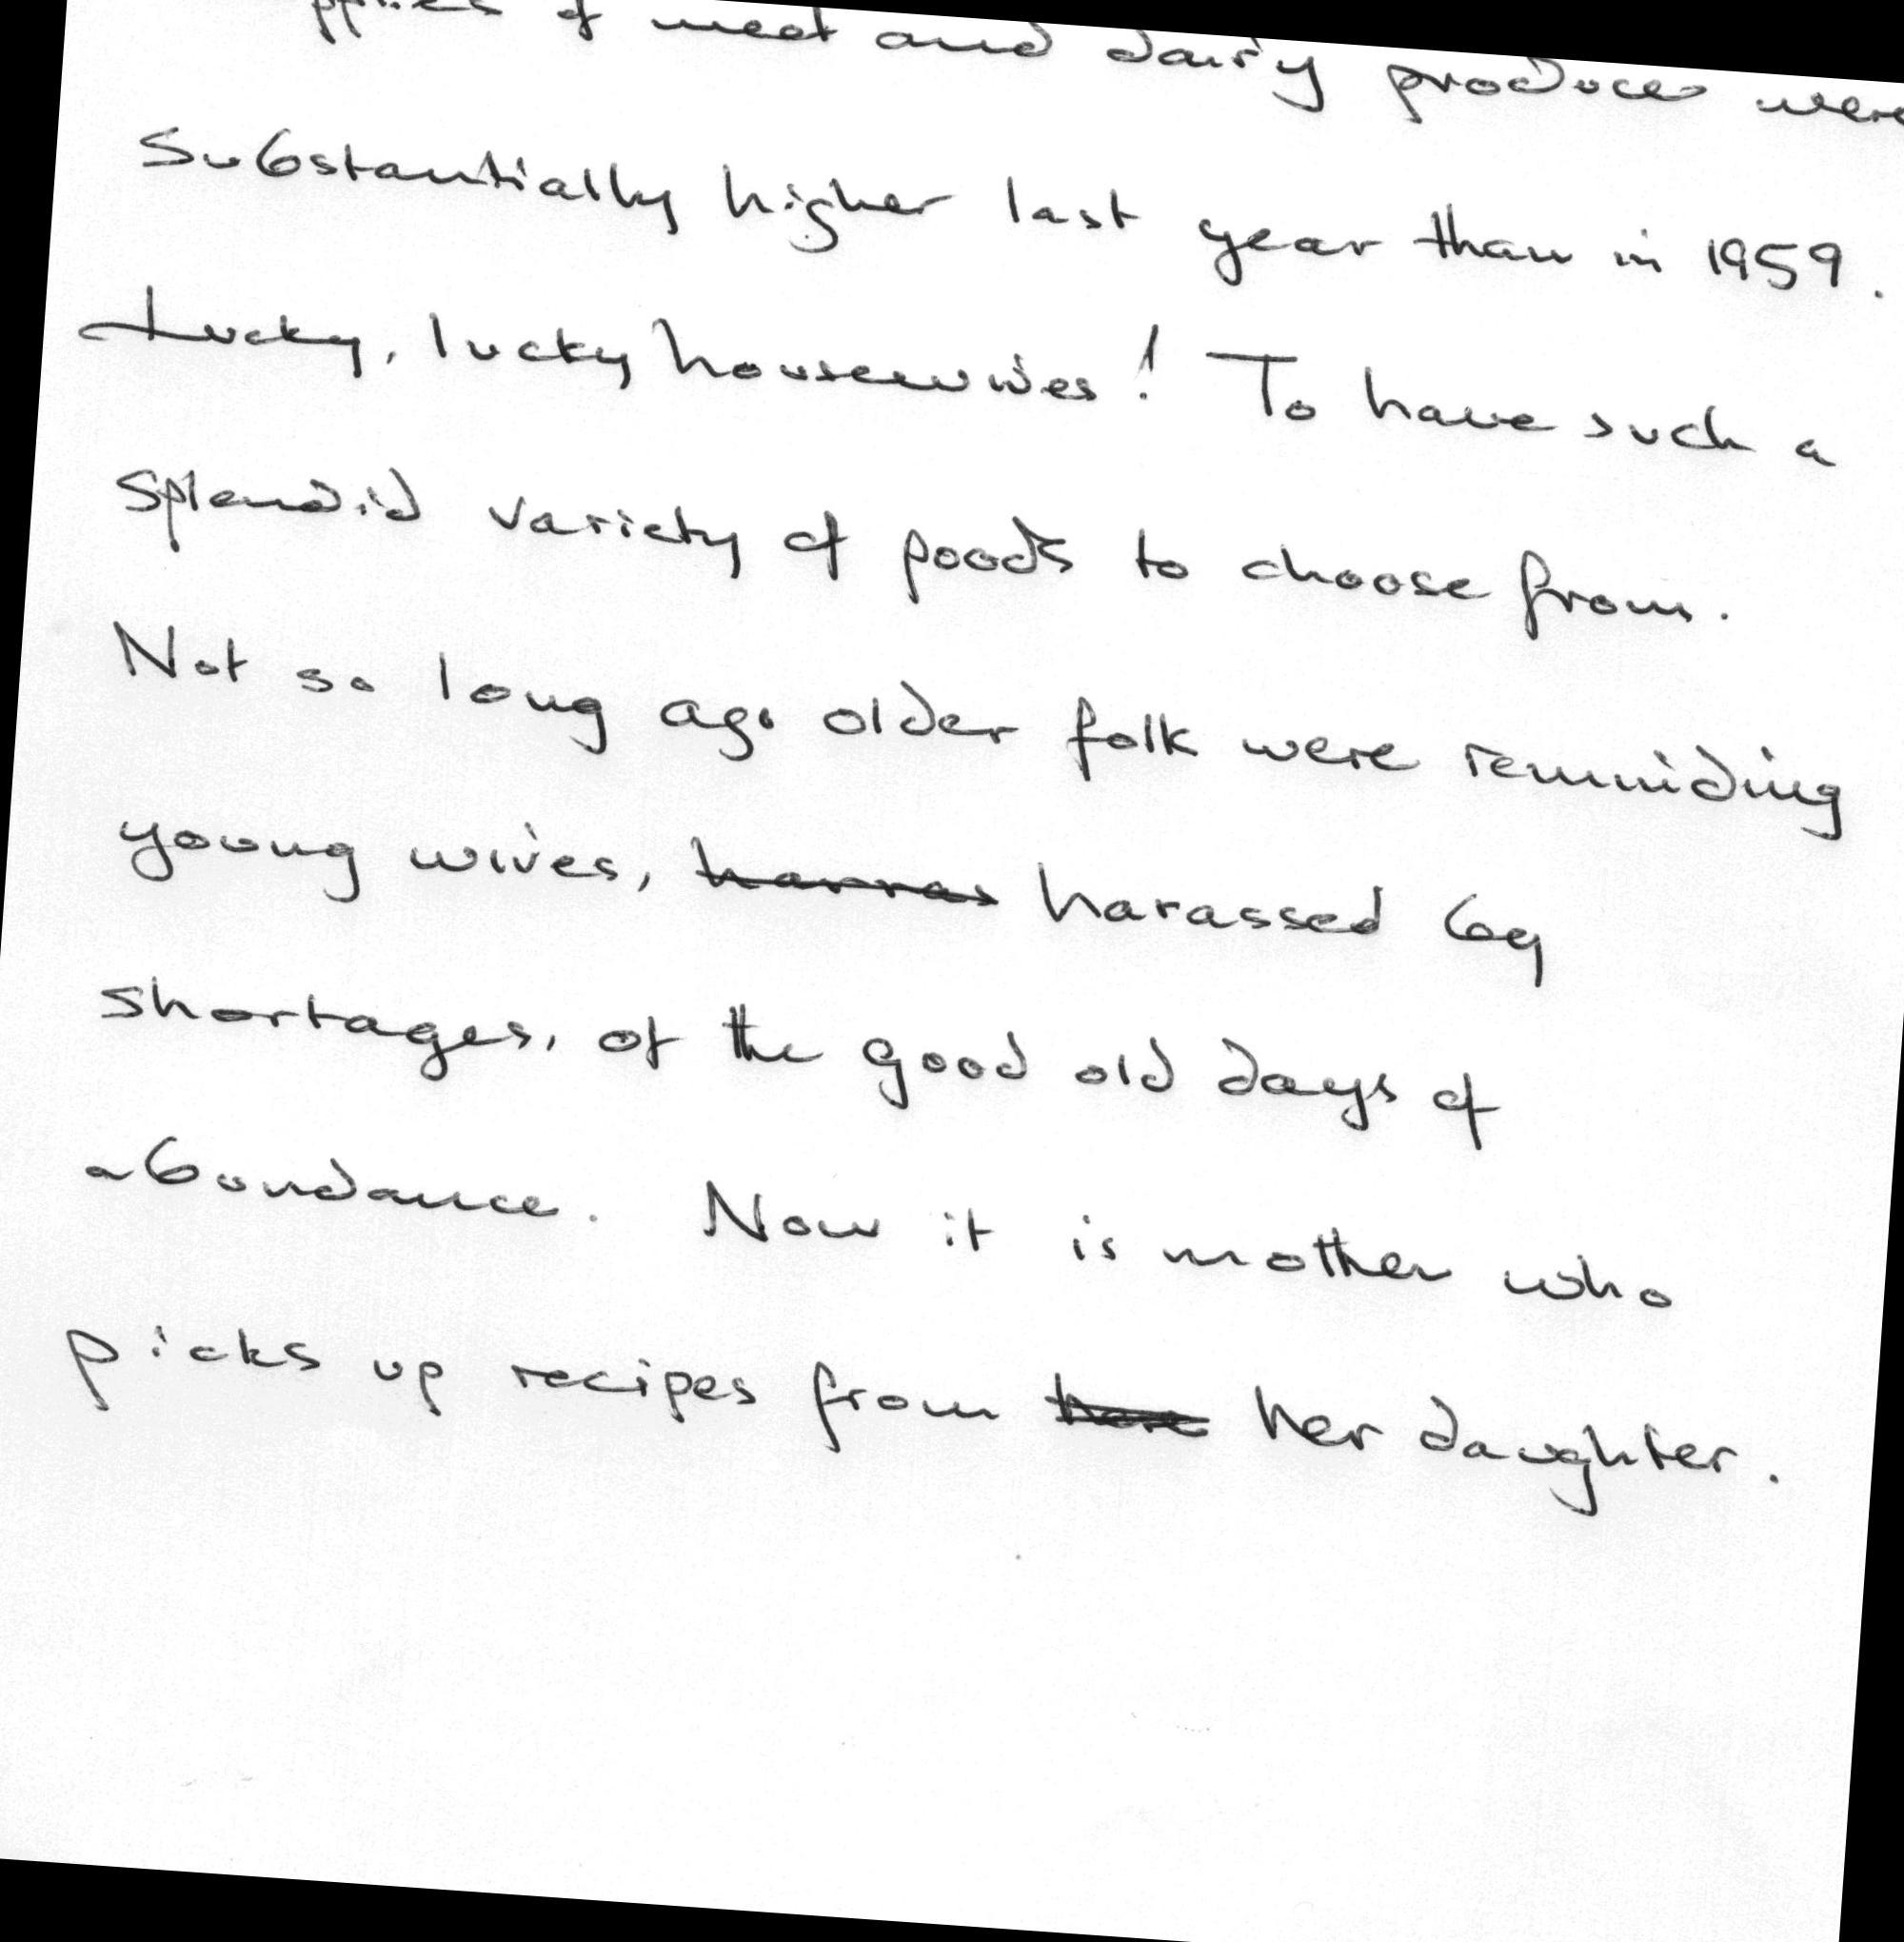 of meat and dairy produce were
substantially higher last year than in 1959.
Lucky, lucky housewives! To have such a
splendid variety of foods to choose from.
Not so long ago older folk were reminding
young wives, harassed by
shortages, of the good old days of
abundance. Now it is mother who
picks up recipes from her daughter.